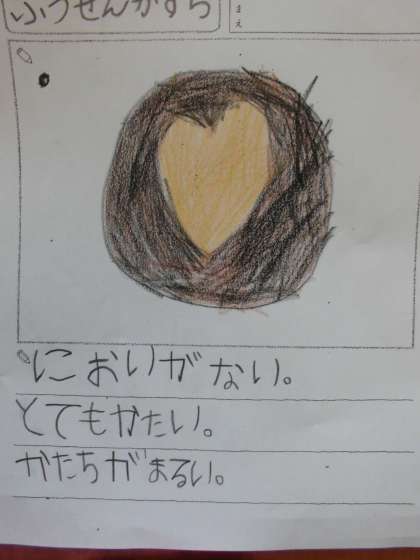 ふうせんかずら
まえ
においがない。
とてもかたい。
かたちがまるい。